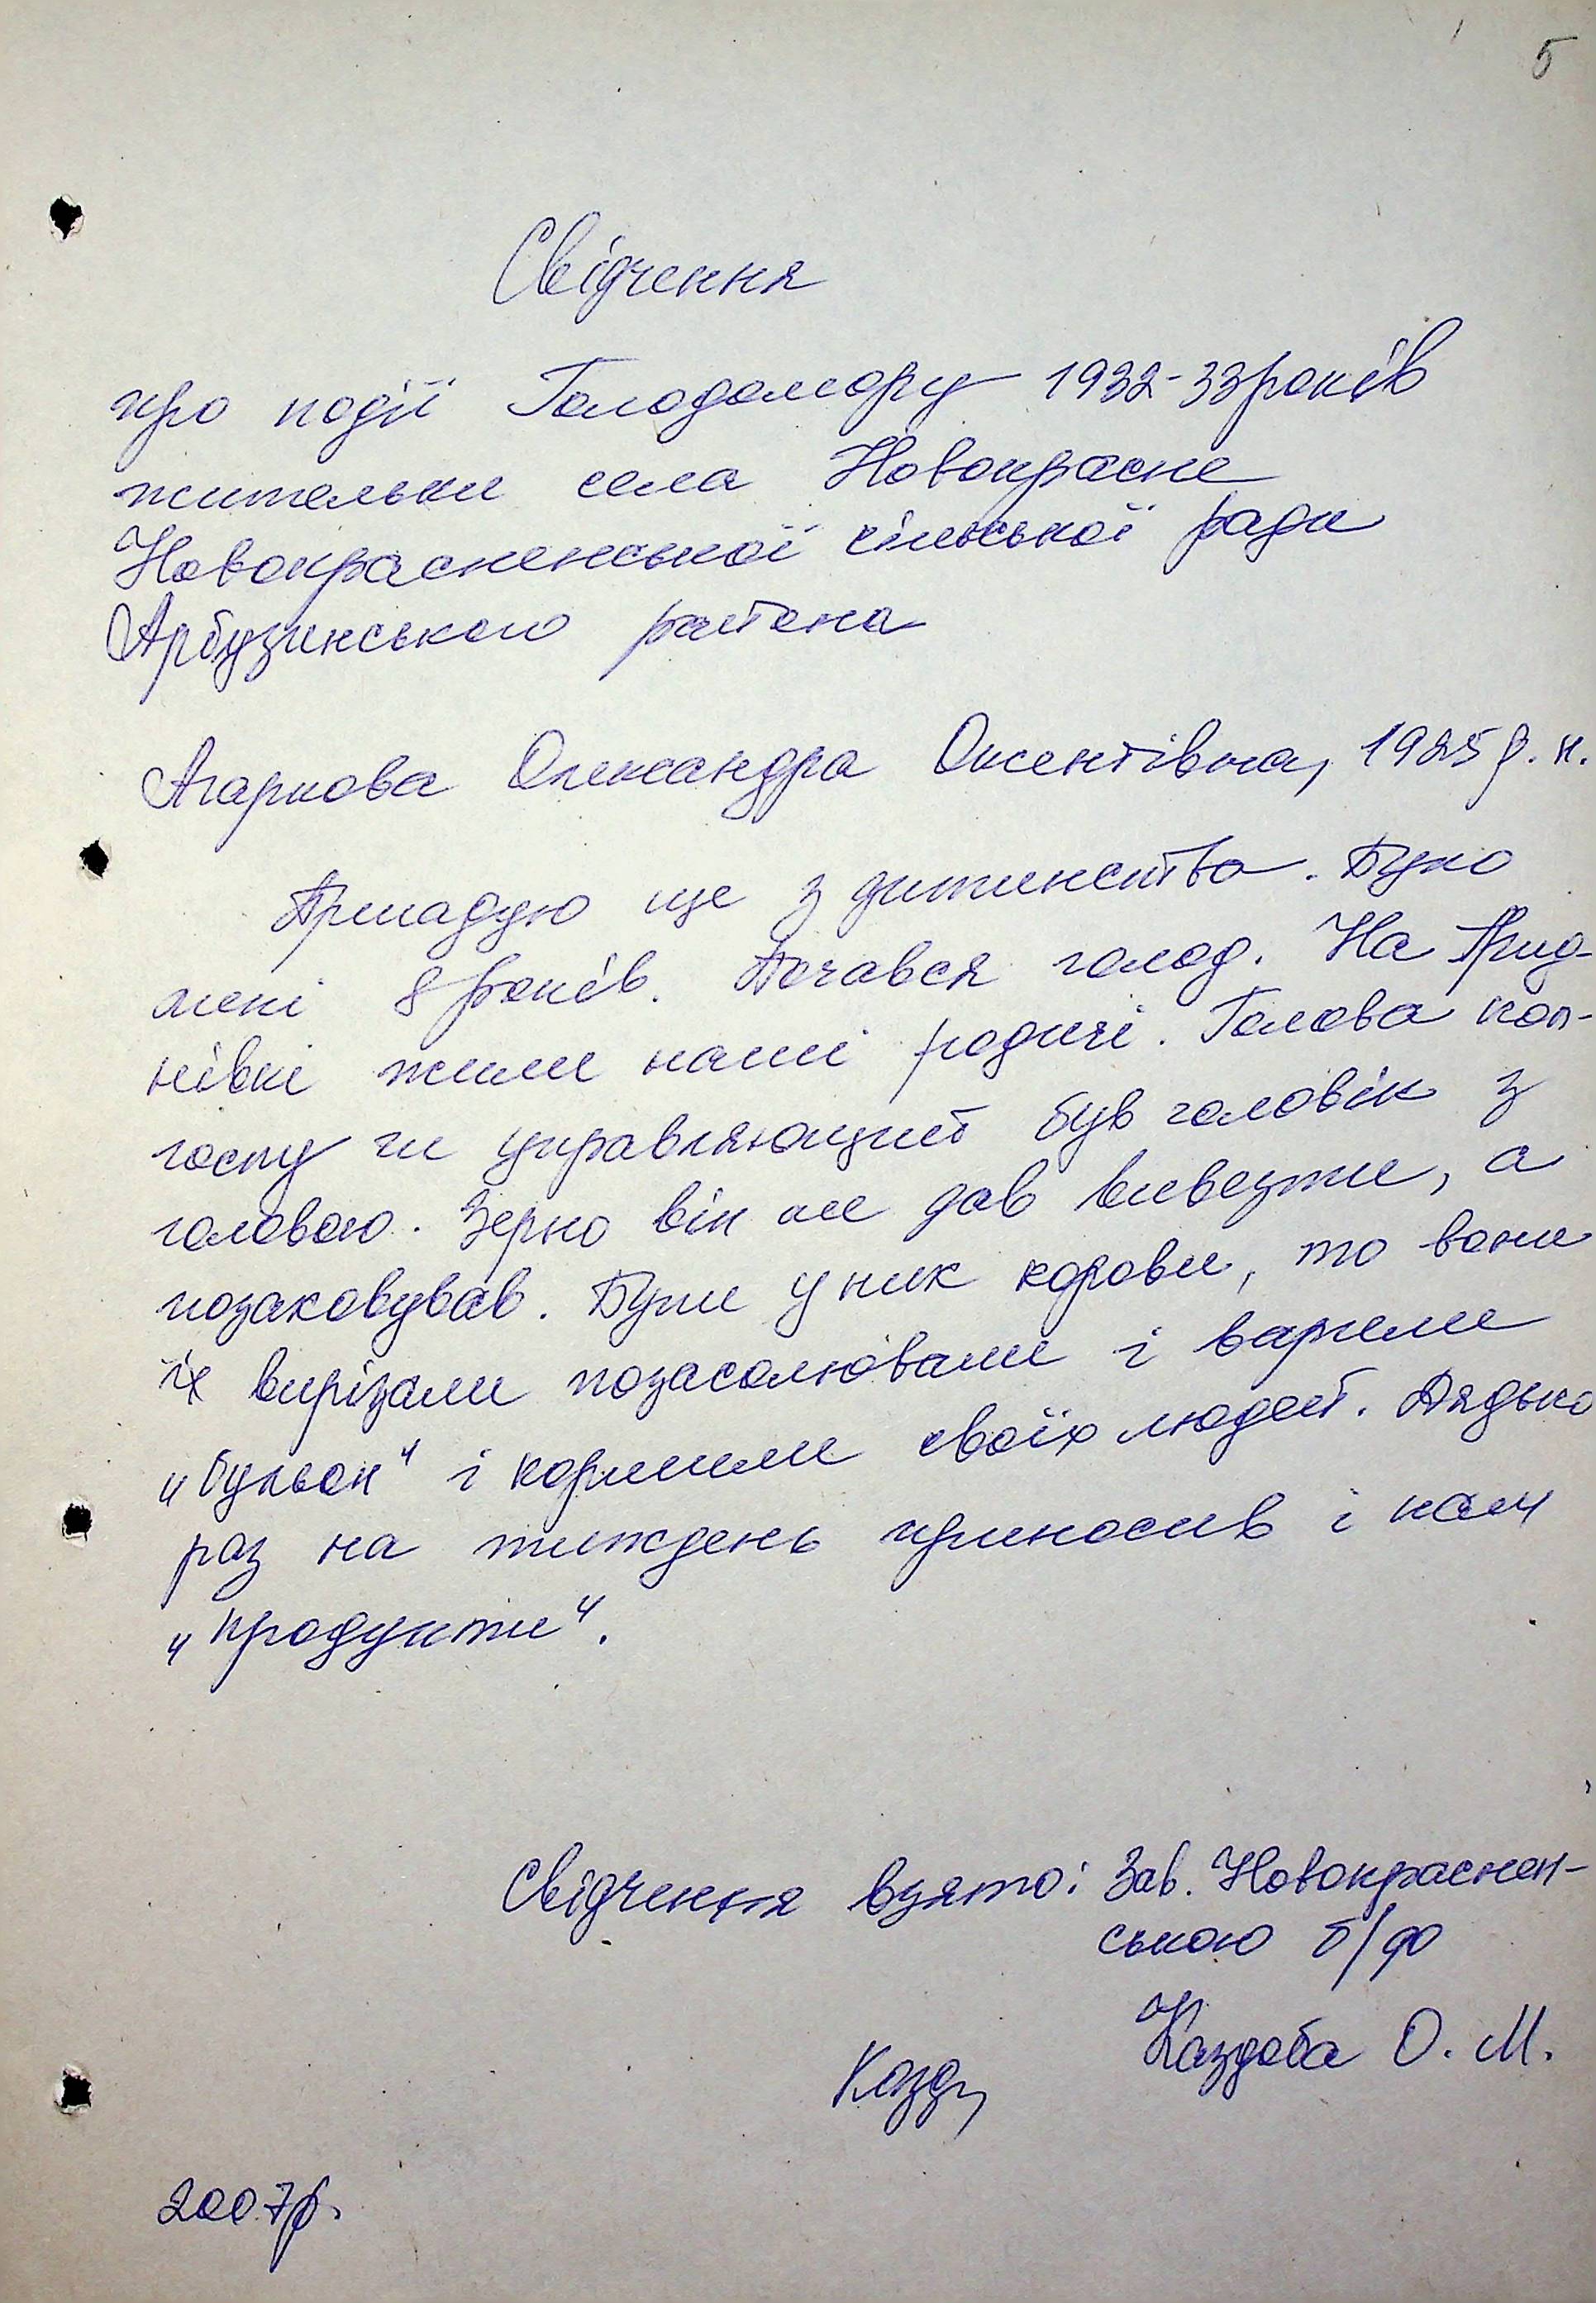 5
Свідчення
про події Голодомору 1932-33 років
жительки села Новокрасне
Новокрасненської сільської ради
Арбузинського району
Агаркова Олександра Оксентівна, 1925 р. н.
Пригадую ще з дитинства. Було
мені 8 років. Почався голод. На Арид-
нівкі жили наші родичі. Голова кол-
госпу чи управляющий був чоловік з
головою. Зерно він не дав вивезти, а
позаховував. Були у них корови, то вони
їх вирізали позасолювали і варили
„бульон" і кормили своїх людей. Дядько
раз на тиждень приносив і нам
„продукти".
Свідчення взято: Зав. Новокраснен-
ською б/ф
Каздоба О. М.
Казд
2007р.